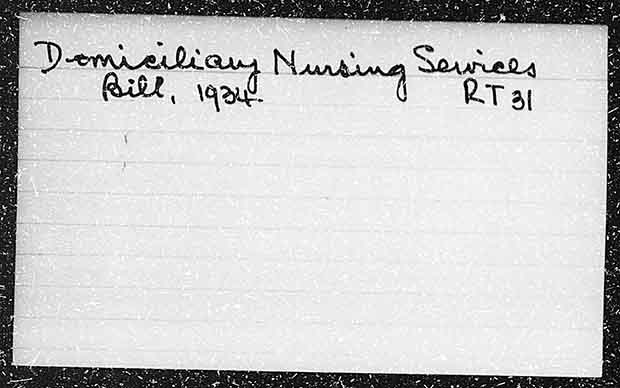 Domiciliary Nursing Services
Bill, 1934. RT 31